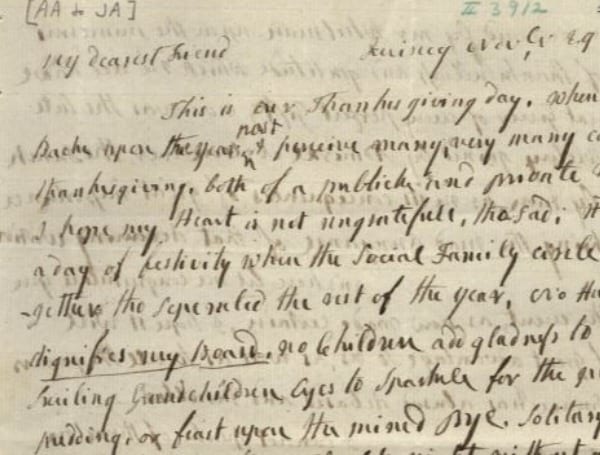 [AA to JA]
II 3912
My dearest Friend Quincy Novbr 29
This is our Thanksgiving day, when
Back upon the year past & perceive many, very many ca
thanksgiving, both of a publick and private
I hope my Heart is not ungratefull, tho sad; it
a day of festivity when the Social Family circle
-gether tho seperated the rest of the year,
dignifies my Board, no Children add gladness to
Smiling Grandchildren Eyes to Sparkle for the
pudding, or feast upon the minced Pye. Solitary